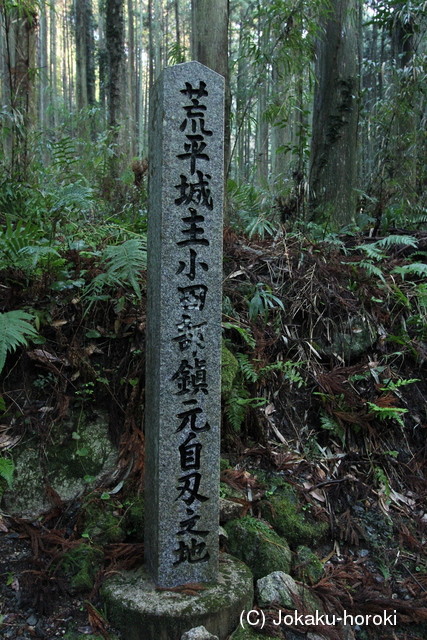 荒平城主小田部鎮元自刃之地
(C) Jokaku-horoki